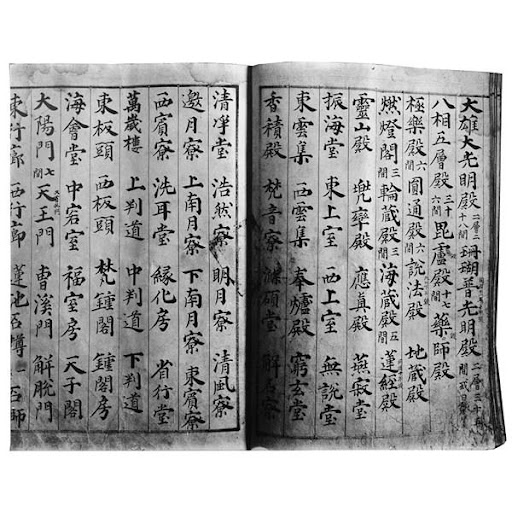 大雄大光明殿 二層三十八間 珊瑚普光明殿 二層三十間
八相五層殿 三十六間 毘盧殿 間七 藥師殿
極樂殿 六間 圓通殿 六間 說法殿 地藏殿
燃燈閣 三間 輪藏殿 三間 海藏殿 五間 蓮經殿
靈山殿 兠率殿 應眞殿 燕寂堂
振海堂 東上室 西上室 無說堂
東雲集 西雲集 奉爐殿 窮玄堂
香積殿 梵音寮
清淨堂 浩然寮 明月寮 清風寮
邀月寮 上南月寮 下南月寮 東賓寮
西賓寮 洗耳堂 緣化房 省行堂
萬歲樓 上判道 中判道 下判道
東板頭 西板頭 梵鐘閣 鍾閣房
海會堂 中宕室 福室房 天子閣
大陽門 七間 天王門 曹溪門 解脫門
東行廊 西行廊 蓮池石